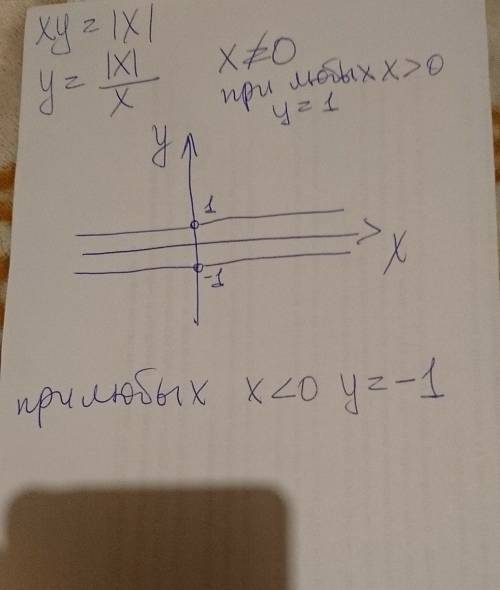 xy = |x|
y = |x|/x
x ≠ 0
при любых x > 0
y = 1
y
1
x
-1
при любых x < 0 y = -1